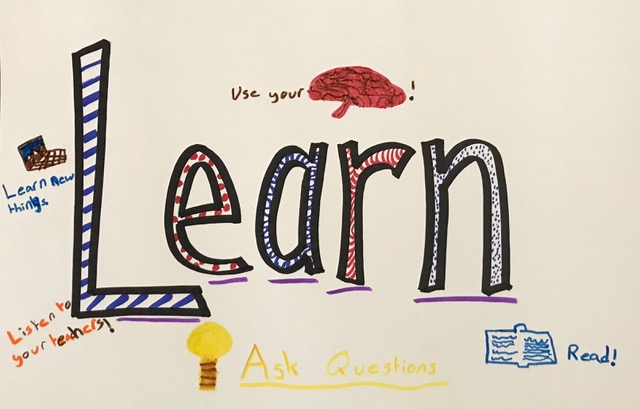 Use your !
Learn
Learn new
things
Listen to
your teachers!
Ask Questions
Read!